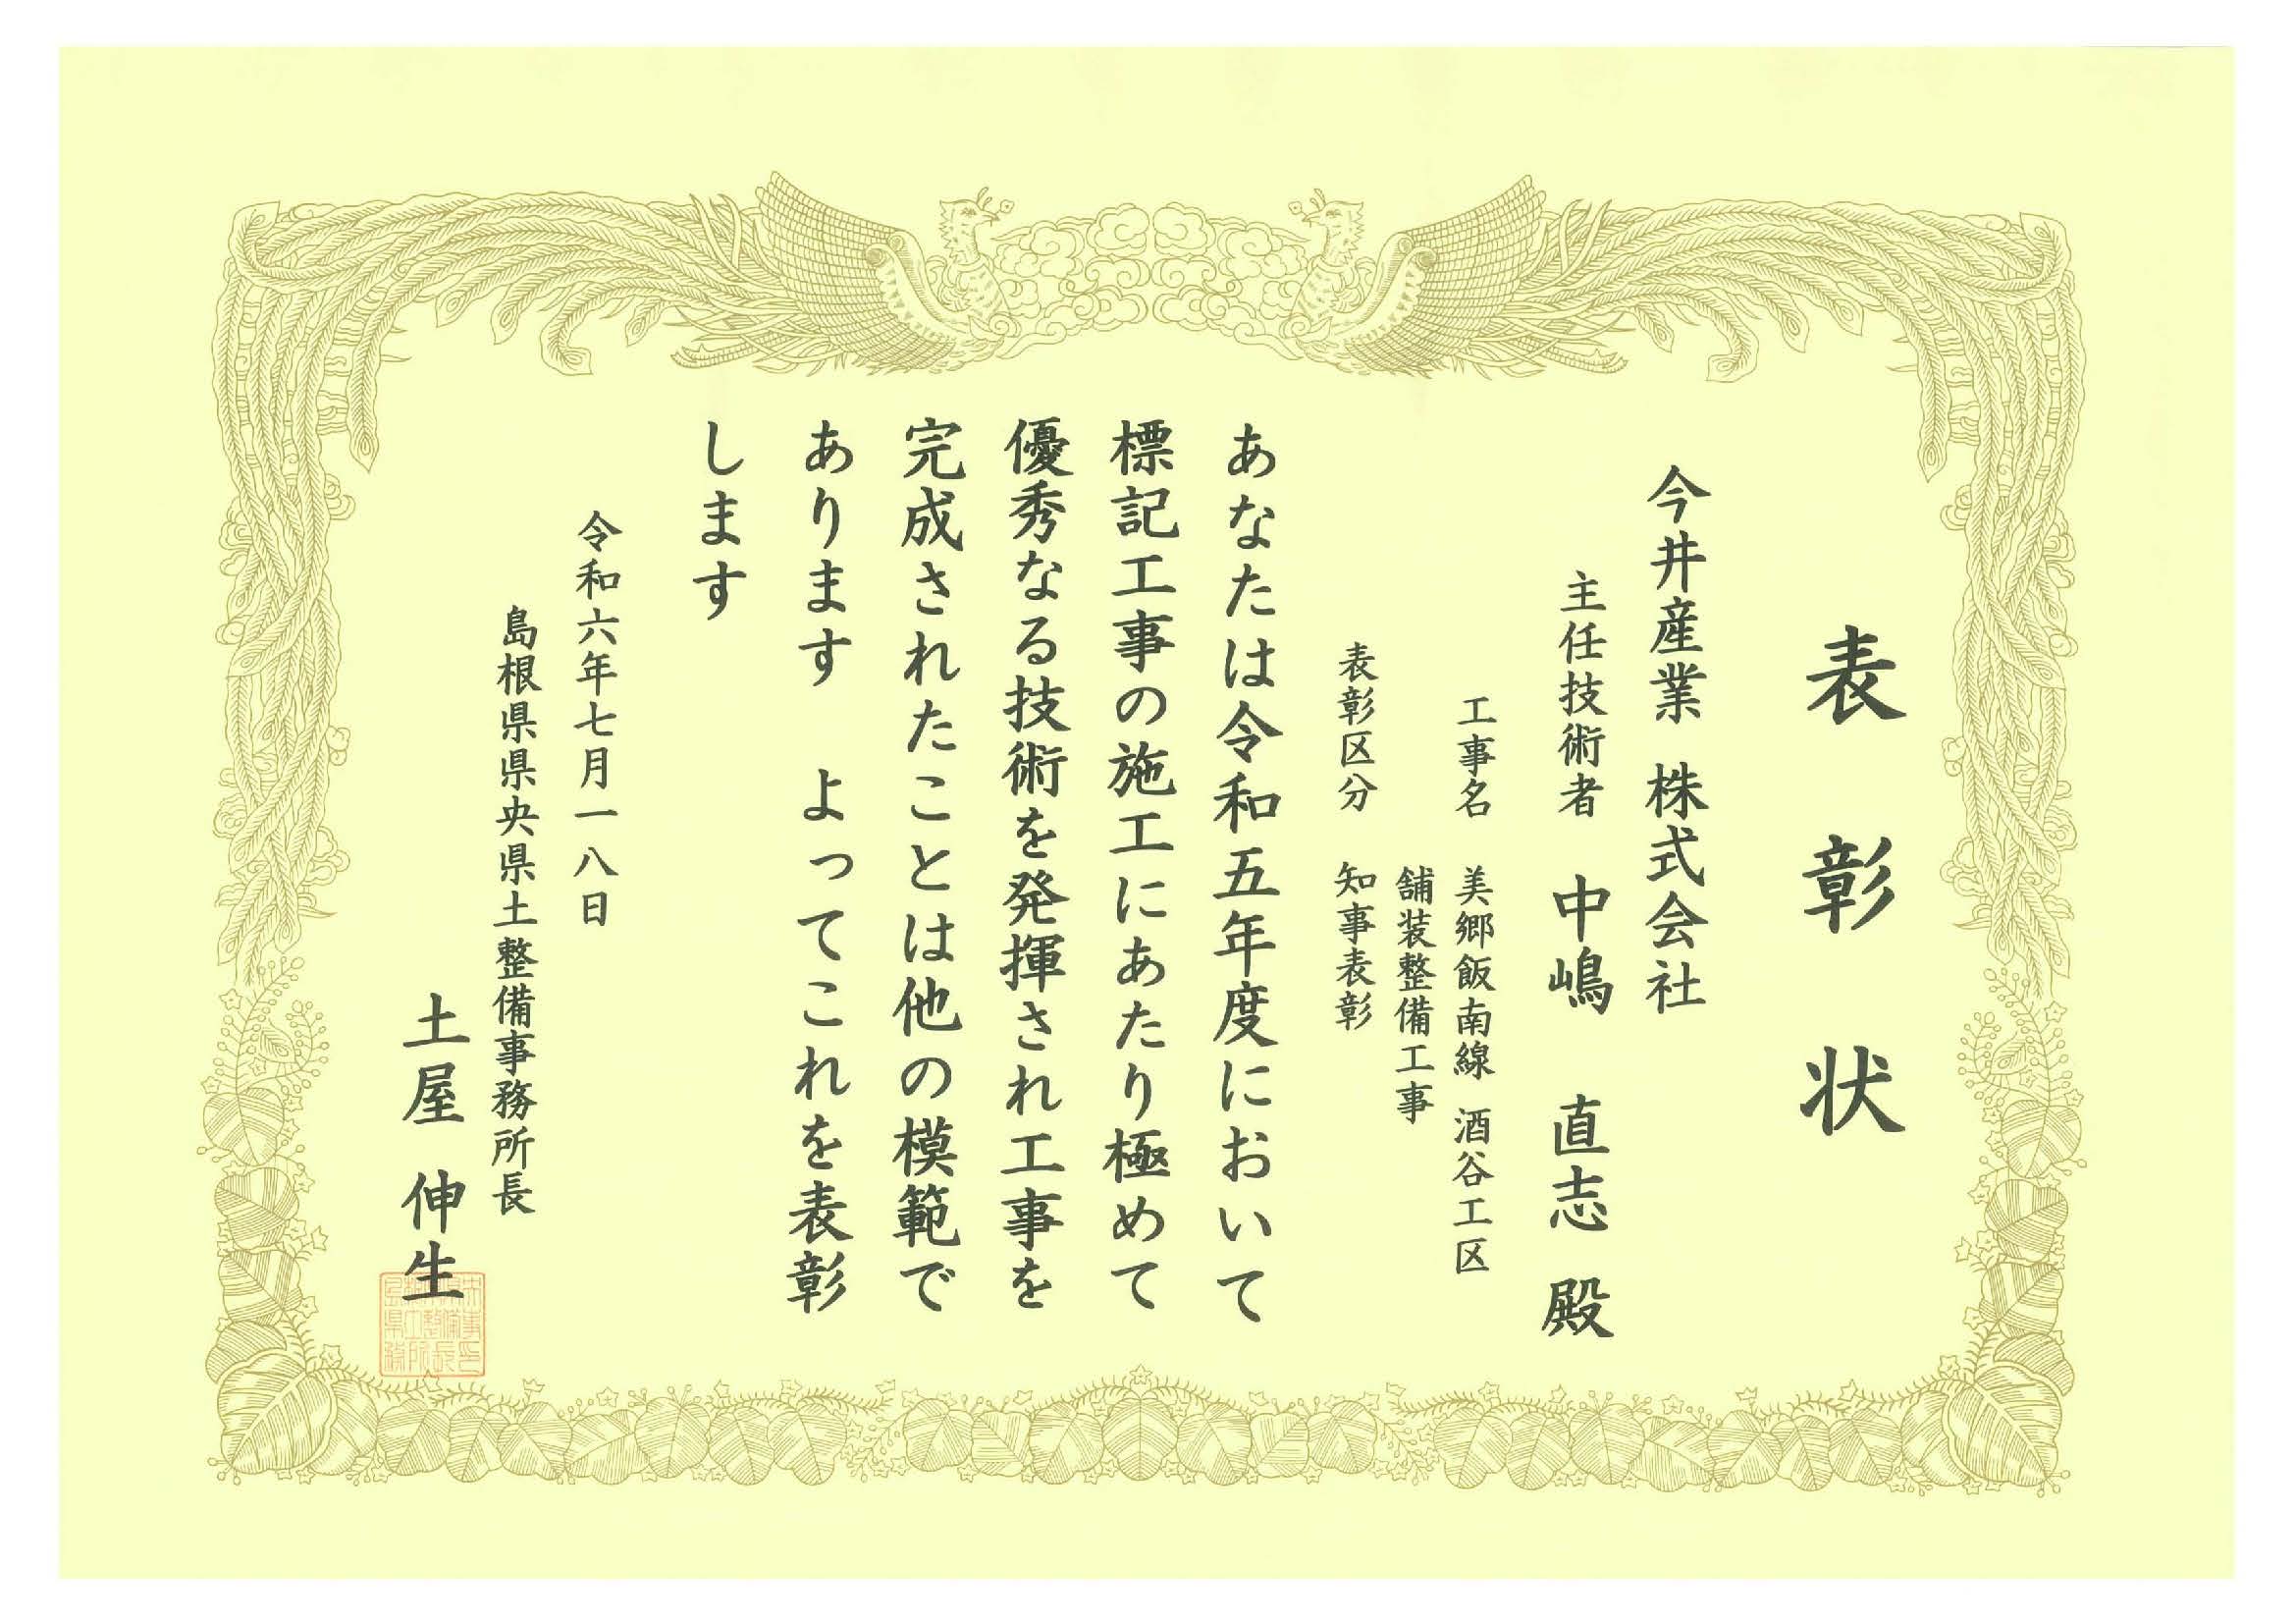 表彰状
今井産業 株式会社
主任技術者 中嶋 直志 殿
工事名 美郷飯南線 酒谷工区
舗装整備工事
表彰区分 知事表彰
あなたは令和五年度において
標記工事の施工にあたり極めて
優秀なる技術を発揮され工事を
完成されたことは他の模範で
あります よってこれを表彰
します
令和六年七月一八日
島根県県央県土整備事務所長
土屋 伸生